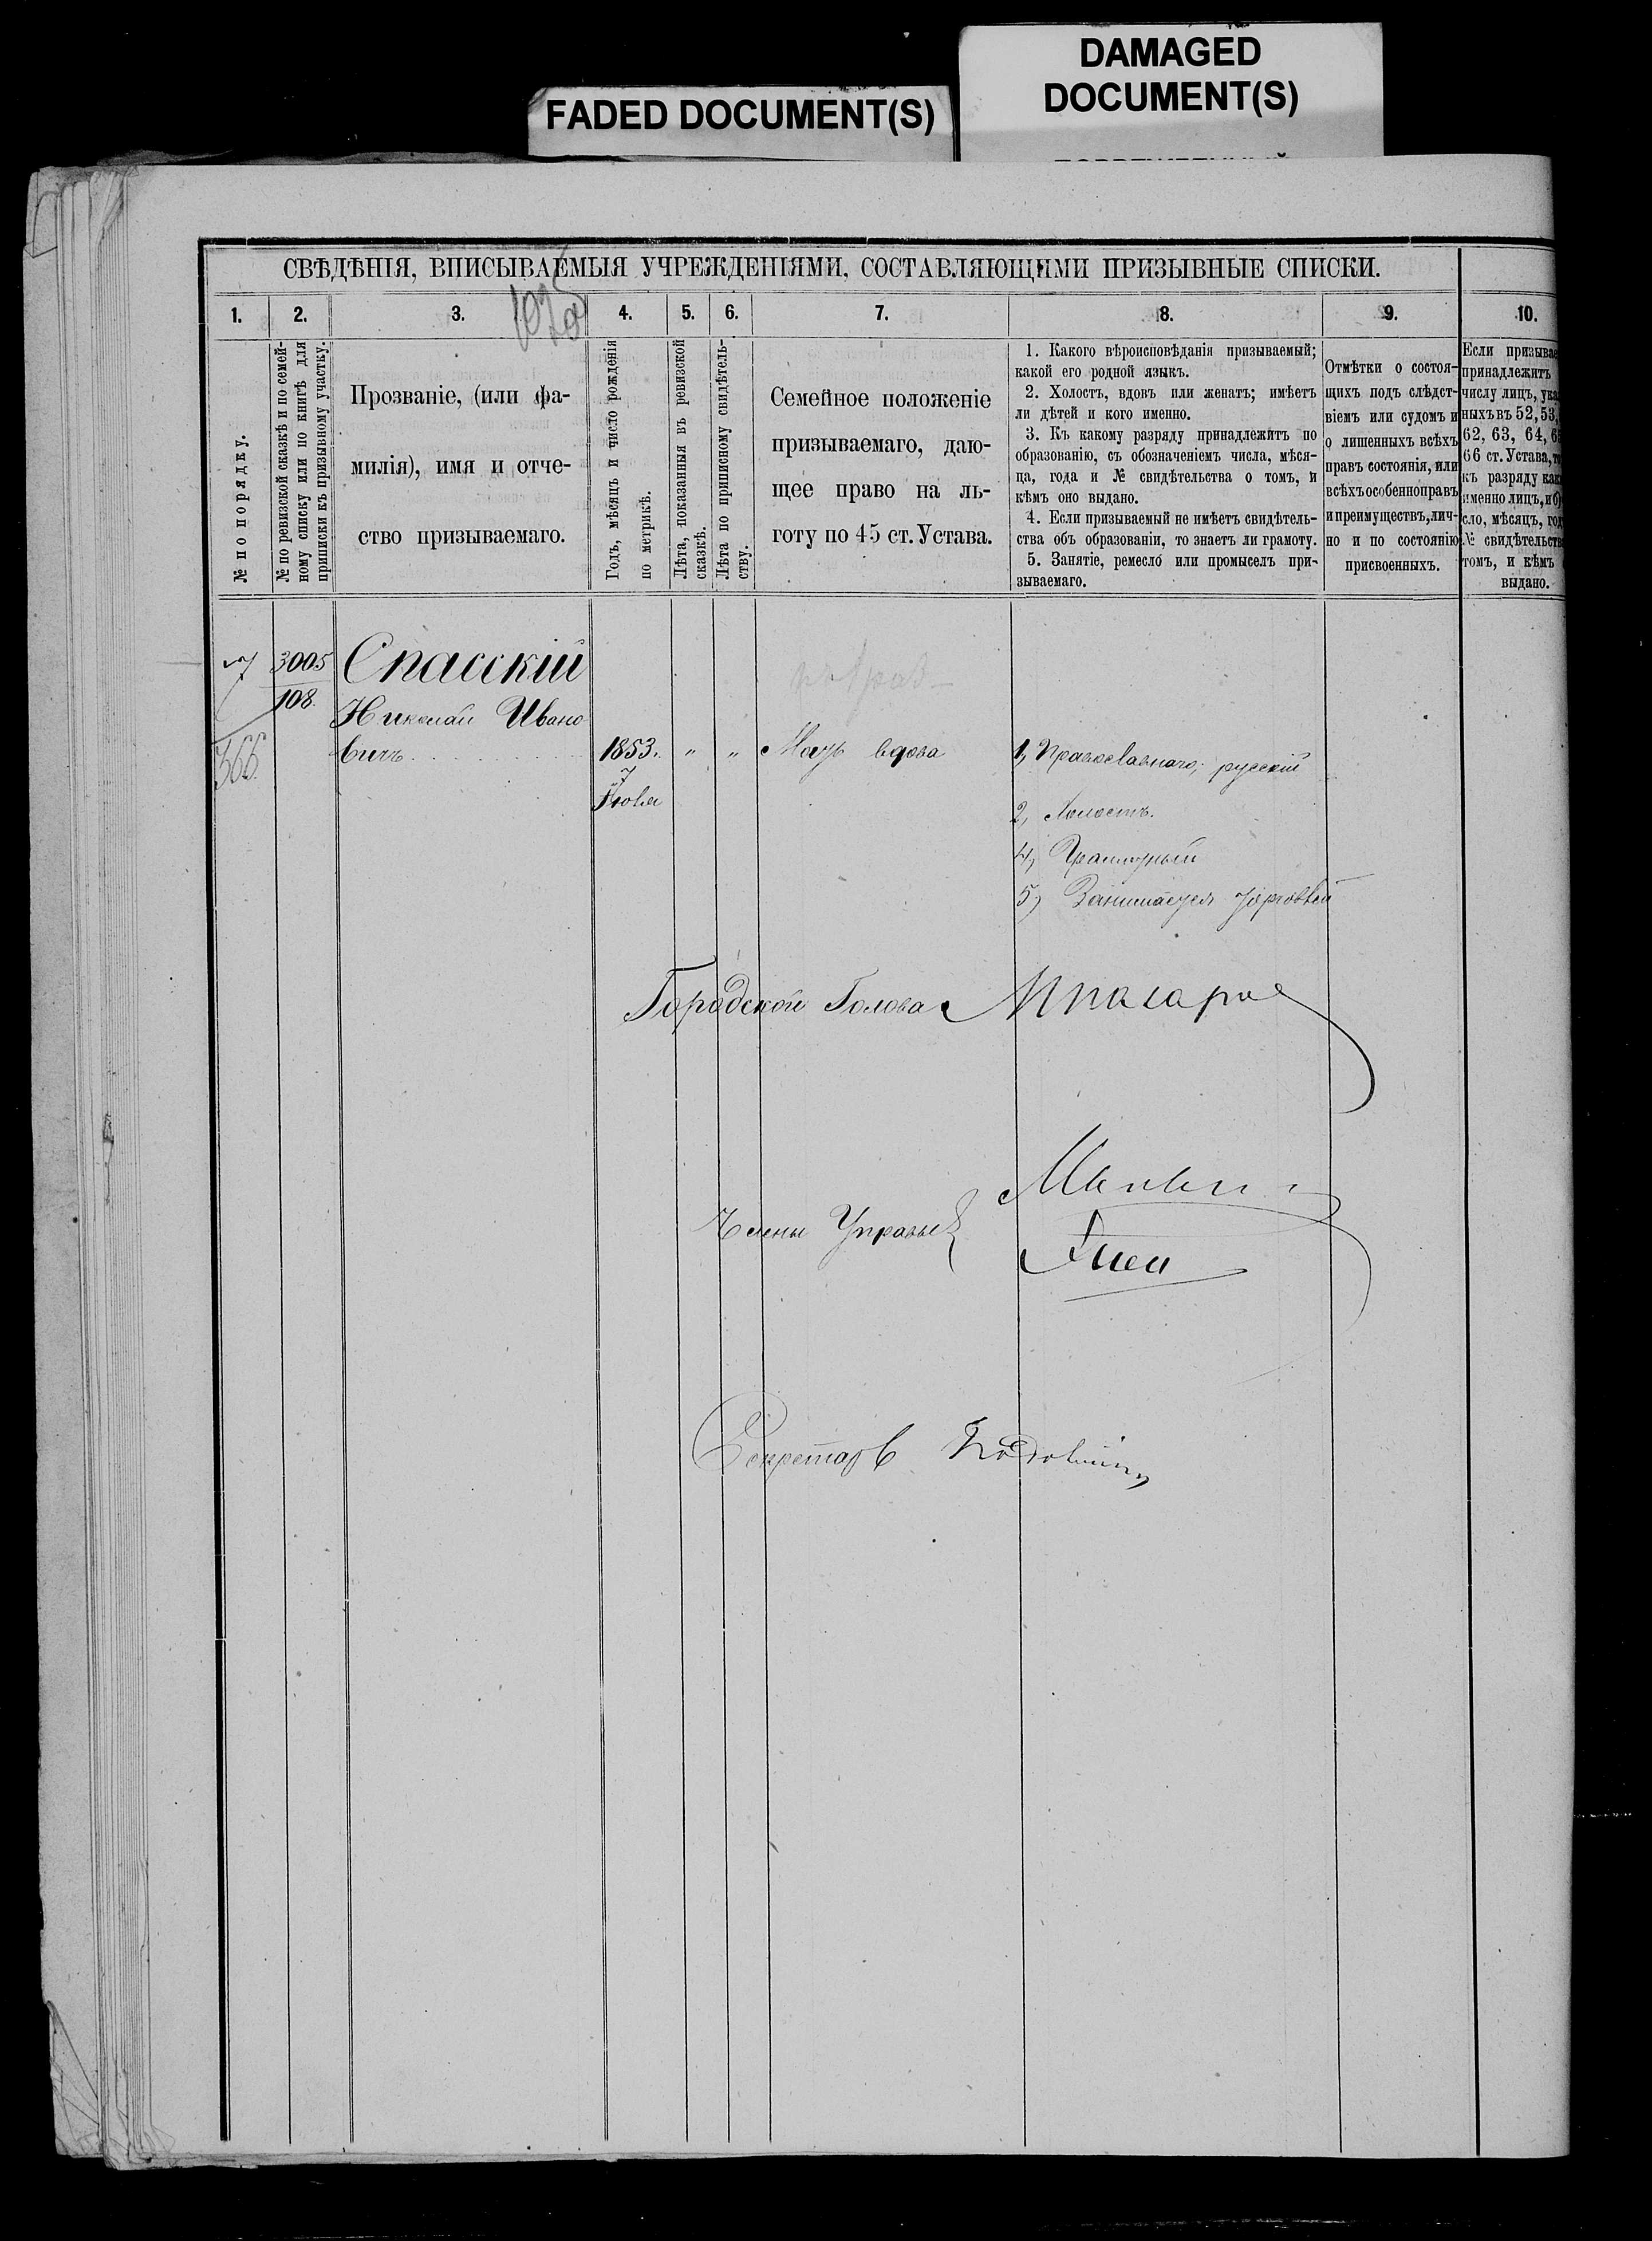 FADED DOCUMENT(S)
DAMAGED
DOCUMENT(S)
СВѢДѢНІЯ, ВПИСЫВАЕМЫЯ УЧРЕЖДЕНІЯМИ, СОСТАВЛЯЮЩИМИ ПРИЗЫВНЫЕ СПИСКИ.
1.
2.
3.
4.
5.
6.
7.
8.
9.
10.
№ по порядку.
№ по ревизской сказкѣ и по семей-
ному списку или по книгѣ для
приписки къ призывному участку.
Прозваніе, (или фа-
милія), имя и отче-
ство призываемаго.
Годъ, мѣсяцъ и число рожденія
по метрикѣ.
Лѣта, показанныя въ ревизской
сказкѣ.
Лѣта по приписному свидѣтель-
ству.
Семейное положеніе
призываемаго, даю-
щее право на ль-
готу по 45 ст. Устава.
1. Какого вѣроисповѣданія призываемый;
какой его родной языкъ.
2. Холостъ, вдовъ или женатъ; имѣетъ
ли дѣтей и кого именно.
3. Къ какому разряду принадлежитъ по
образованію, съ обозначеніемъ числа, мѣся-
ца, года и № свидѣтельства о томъ, и
кѣмъ оно выдано.
4. Если призываемый не имѣетъ свидѣтель-
ства объ образованіи, то знаетъ ли грамоту.
5. Занятіе, ремесло или промыселъ при-
зываемаго.
Отмѣтки о состоя-
щихъ подъ слѣдст-
віемъ или судомъ и
о лишенныхъ всѣхъ
правъ состоянія, или
всѣхъ особенно правъ
и преимуществъ, лич-
но и по состоянію
присвоенныхъ.
Если призывае
принадлежитъ
числу лицъ, ука
ныхъ въ 52, 53,
62, 63, 64, 6
66 ст. Устава, то
къ разряду как
именно лицъ, и
сло, мѣсяцъ, год
№ свидѣтельств
томъ, и кѣмъ
выдано.
7
3005
108.
366
Спасскій
Николай Ивано-
вичъ
1853.
7
Іюля
" "
Мать вдова
1, Православнаго, русскій
2, Холостъ.
4, Грамотный
5, Занимается торговлей
Городской Голова
Члены Управы
Секретарь